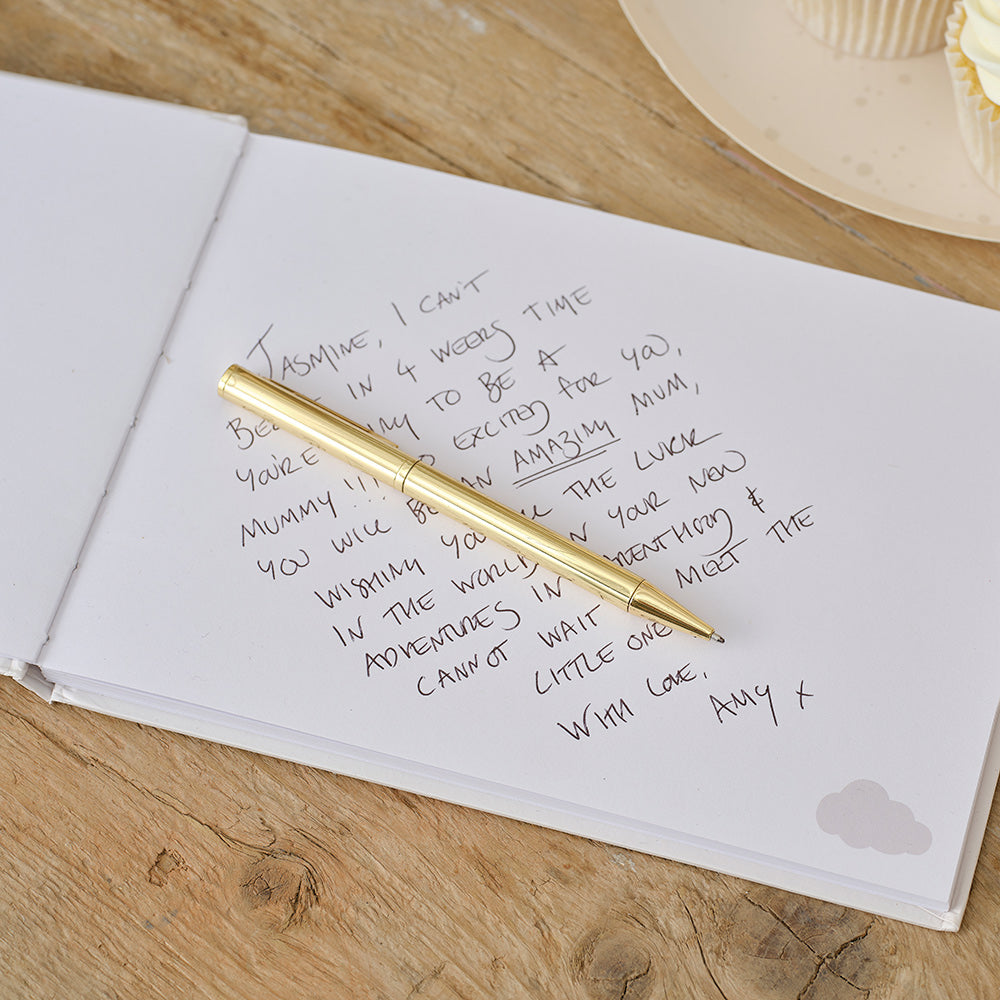 JASMINE, I CAN'T
IN 4 WEEKS TIME
YOU'RE TO BE A
MUMMY!!! EXCITED FOR YOU,
YOU WILL BE AN AMAZING MUM,
WISHING THE LUCK
IN THE WORLD YOUR NEW
ADVENTURES IN &
CANNOT WAIT MEET THE
LITTLE ONE
WITH LOVE,
AMY X